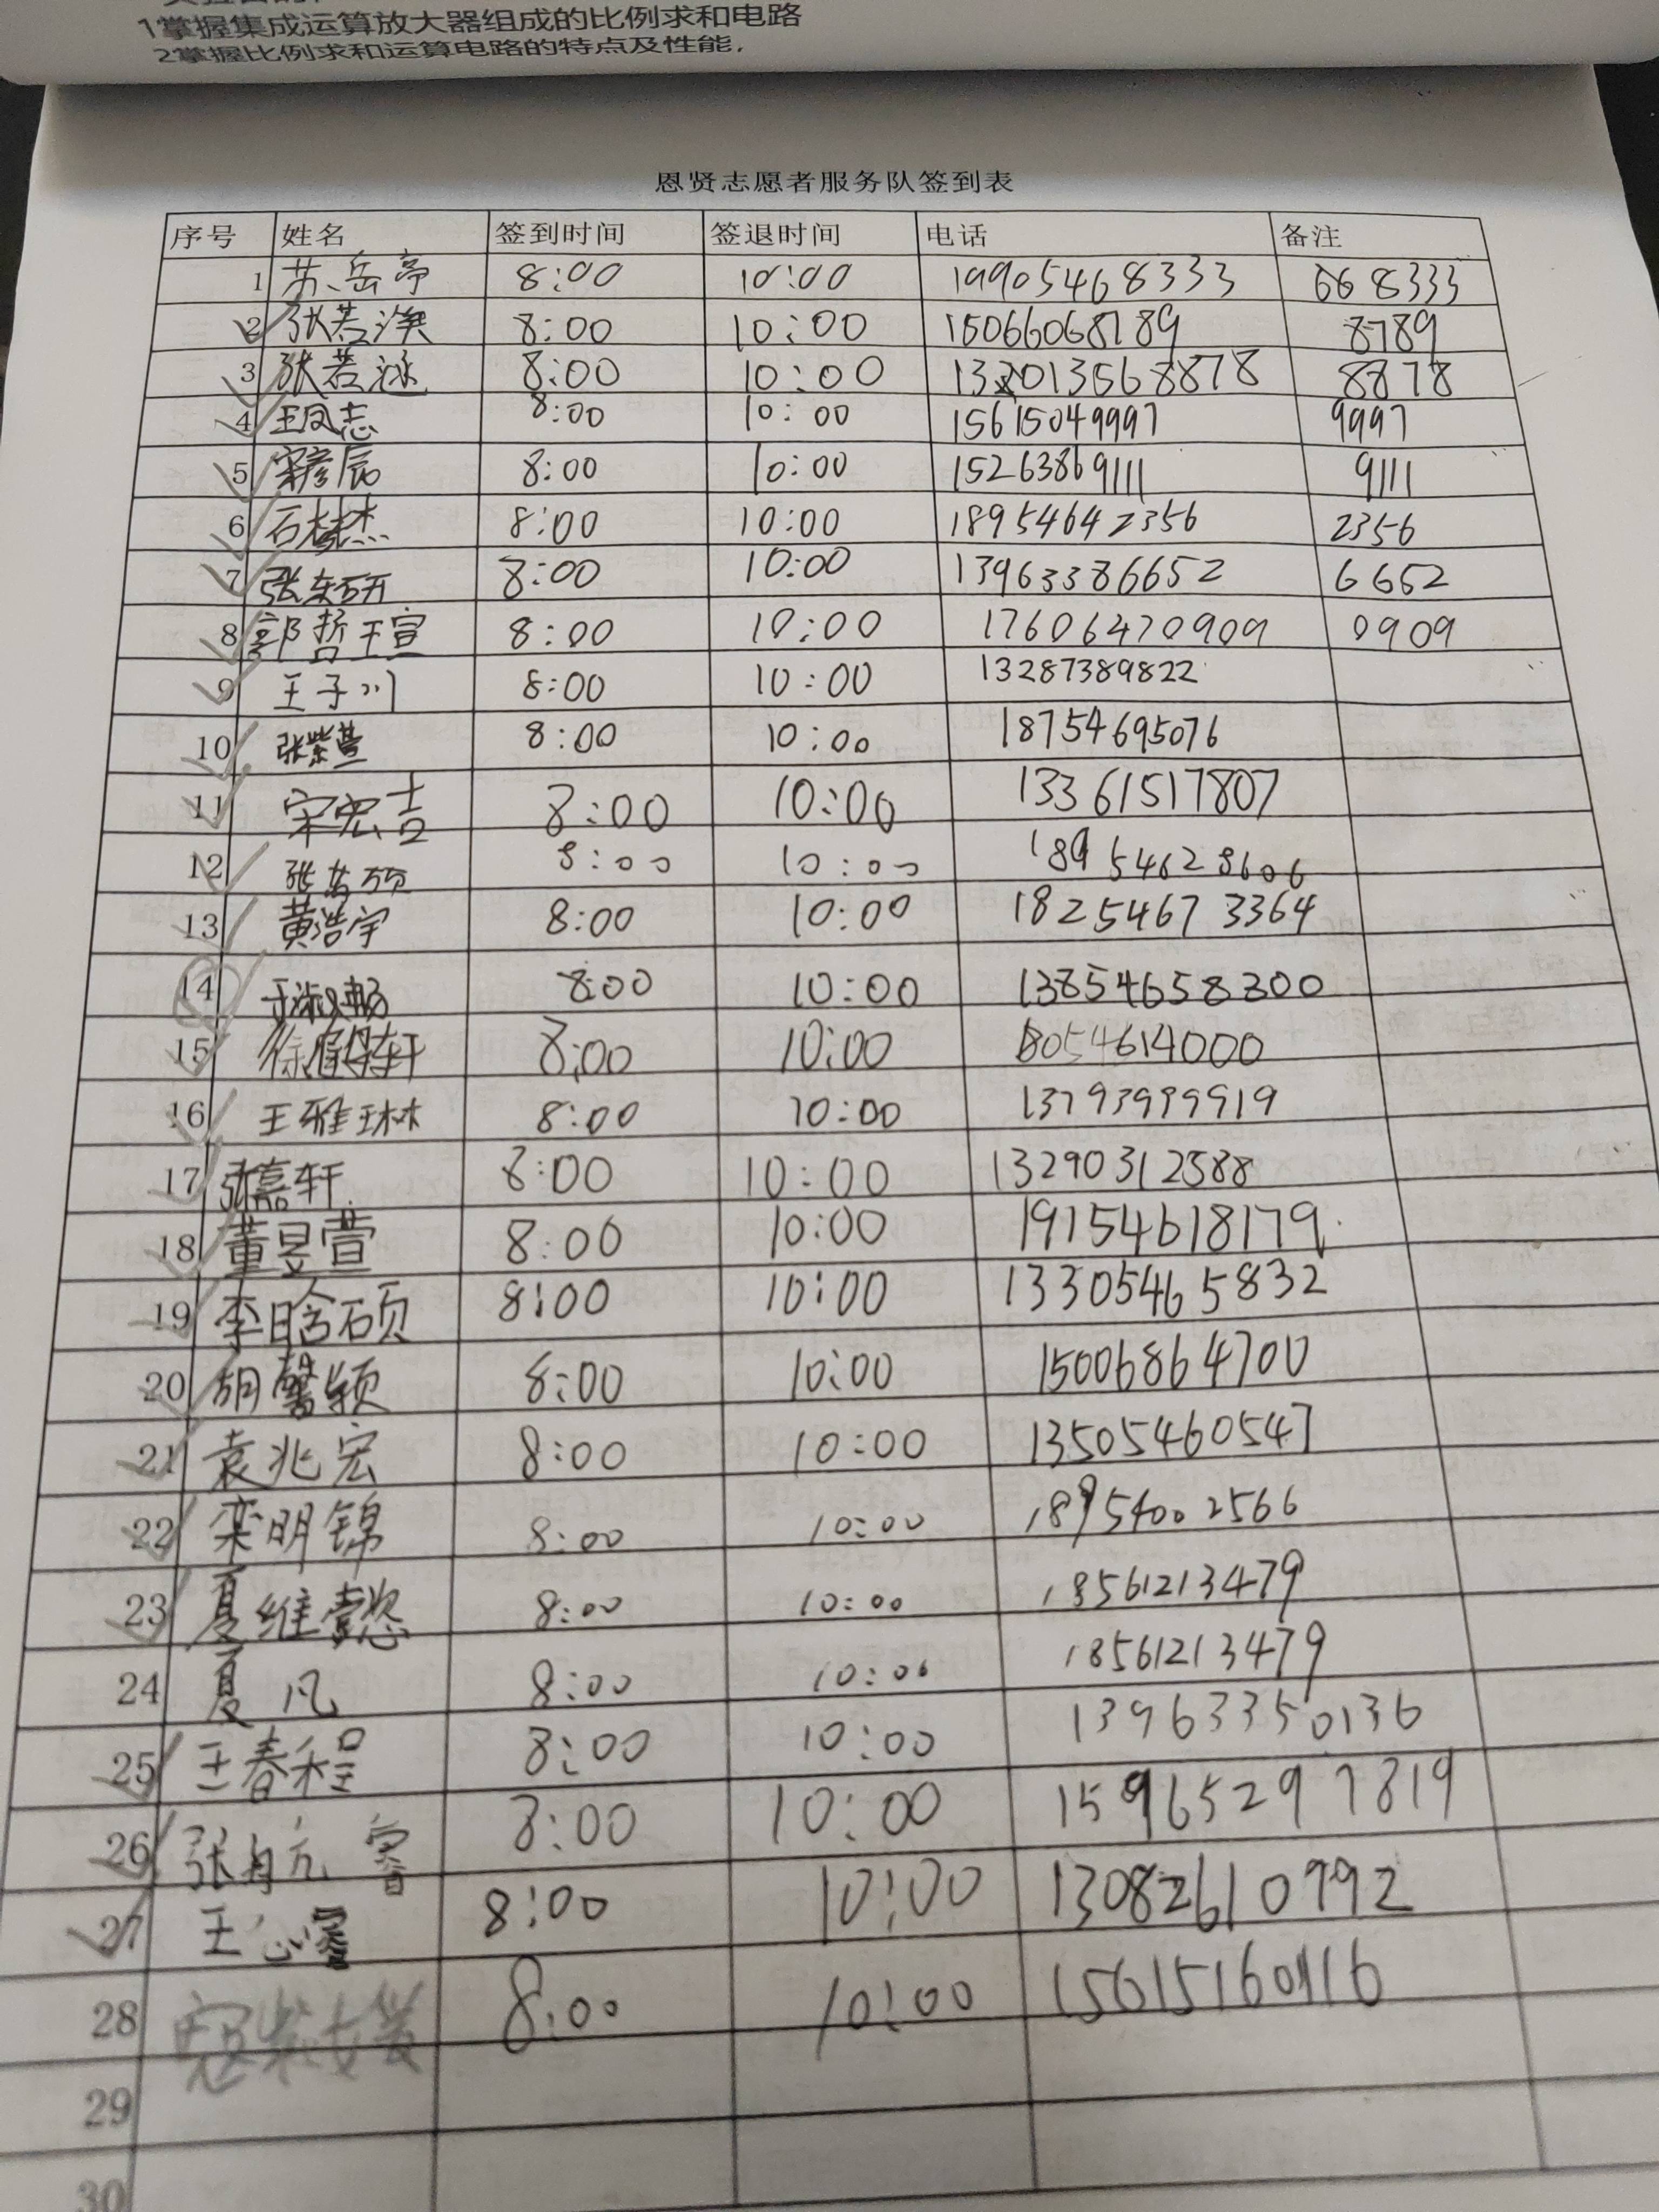 1掌握集成运算放大器组成的比例求和电路
2掌握比例求和运算电路的特点及性能,
恩贤志愿者服务队签到表
序号 姓名 签到时间 签退时间 电话 备注
1 苏岳亭 8:00 10:00 19905468333 668333
2 张若渼 8:00 10:00 15066068789 8789
3 张若涵 8:00 10:00 8878
4 王凤志 8:00 10:00 15615049997 9997
5 宋彦辰 8:00 10:00 15263869111 9111
6 8:00 10:00 18954642356 2356
7 张东研 8:00 10:00 13963386652 6652
8 郭哲瑄 8:00 10:00 17606470909 0909
9 王子川 8:00 10:00 13287389822
10 张紫萱 8:00 10:00 18754695076
11 宋宏吉 8:00 10:00 13361517807
12 8:00 10:00 18954628606
13 黄浩宇 8:00 10:00 18254673364
14 8:00 10:00 13854658300
15 8:00 10:00 18054614000
16 王雅琳 8:00 10:00 13793999919
17 张嘉轩 8:00 10:00 13290312588
18 董昱萱 8:00 10:00 19154618179
19 李晗硕 8:00 10:00 13305465832
20 胡馨颖 8:00 10:00 15006864700
21 袁兆宏 8:00 10:00 13505460547
22 栾明锦 8:00 10:00 18954002566
23 夏维懿 8:00 10:00 18561213479
24 夏凡 8:00 10:00 18561213479
25 王春程 8:00 10:00 13963350136
26 张航睿 8:00 10:00 15965297819
27 8:00 10:00 13082610992
28 8:00 10:00
29
30